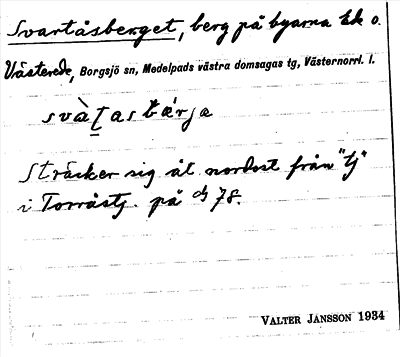 Svartåsberget, berg på byarna Ek o.
Västerede, Borgsjö sn, Medelpads västra domsagas tg, Västernorrl. l.
svàtasbærja
Sträcker sig åt nordost från "tj"
i Torråstj. på 78.
VALTER JANSSON 1934